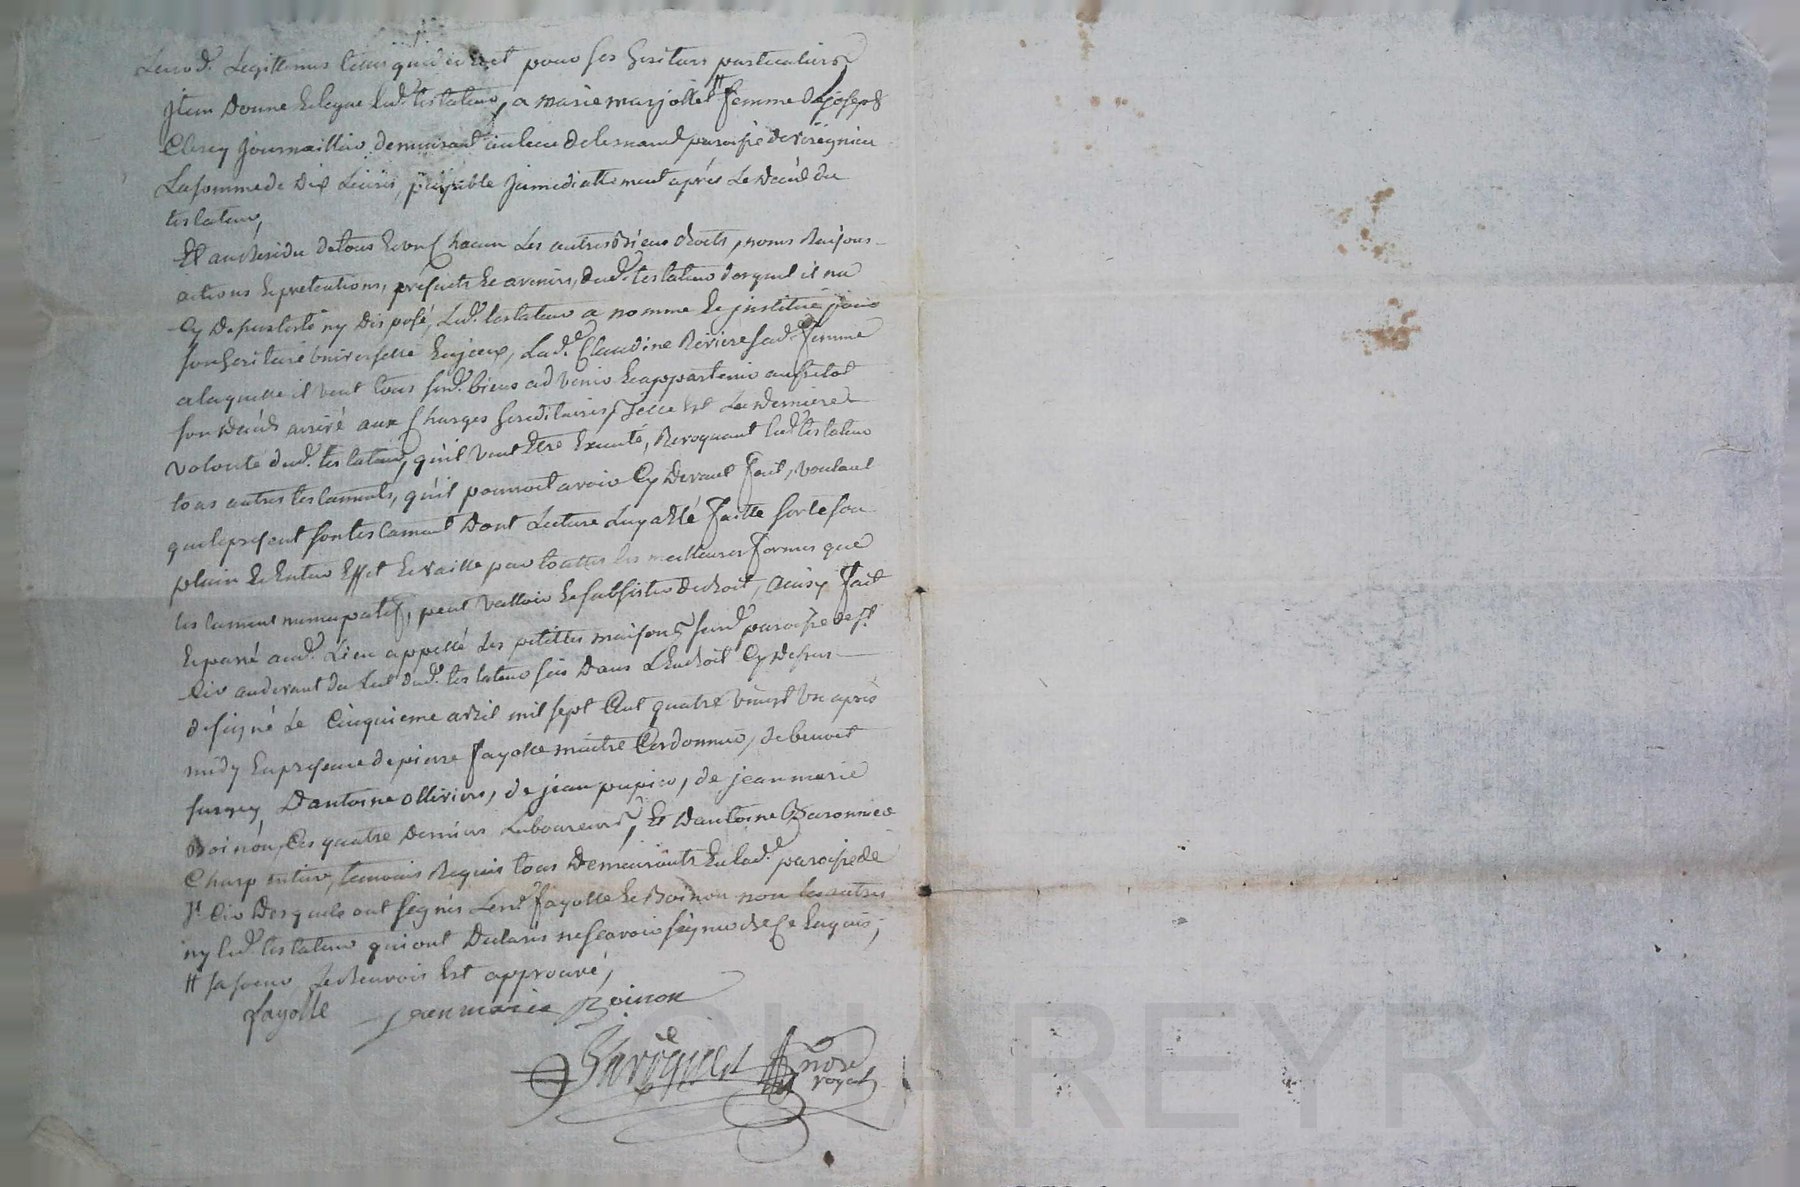 Leurd. Legittimes telles quil est pour ses heritiers particuliers
Item Donne Et legue Led. testateur, a marie marjollet # femme de joseph
Clerey journaillier demeurant au lieu de paroisse de veirignieu
La somme de Dix Livres, payable jmmediattement aprés Le Décéd du
testateur,
Et au Residu de tous Et vn Chacun Les autres Biens droits, noms Raisons
actions Et pretentions, présents Et avenirs, dud. testateur desquels il na
Cy Dessus testé ny Disposé, Led. testateur a nommé Et jnstitué pour
son heritiere vniverselle Lad. Claudine Reviere sad. femme
a laquelle il veut tous sesd. biens advenir Et appartenir aussitot
son Décéds arrivé aux Charges hereditaires, Telle Est La Derniere
volonté dud. testateur, qu'il veut Etre Executé, Revoquant Led. testateur
tous autres testaments, qu'il pourroit avoir Cy Devant fait, voulant
que le present son testament Dont Lecture Luy a Eté faitte sorte son
plein Et Entier Effet Et vaille par touttes les meilleures formes que
testament nuncupatif, peut valloir Et subsister de droit, ainsy fait
Et passé aud. Lieu appellé Les petittes maisons susd. paroisse de st.
Cir audevant du Lit dud. testateur sis Dans L'Endroit Cy Dessus
désigné Le Cinquieme avril mil sept Cent quatre vingt vn aprés
midy En presence de pierre fayolle maitre Cordonnier, de benoit
surgey, D'antoine ollivier, de jean pupier, de jean marie
Boinon, Ces quatre Derniers Laboureurs, Et D'antoine Baronnier
Charpentier, temoins Requis tous Demeurants En Lad. paroisse de
st. Cir Desquels ont signés Lesd. fayolle Et Boinon non Les autres
ny Led. testateur qui ont Declarés ne sçavoir signer de Ce Enquis,
# sa soeur Le Renvois Est approuvé,
fayolle jean marie Boinon
not. royal
CHAREYRON